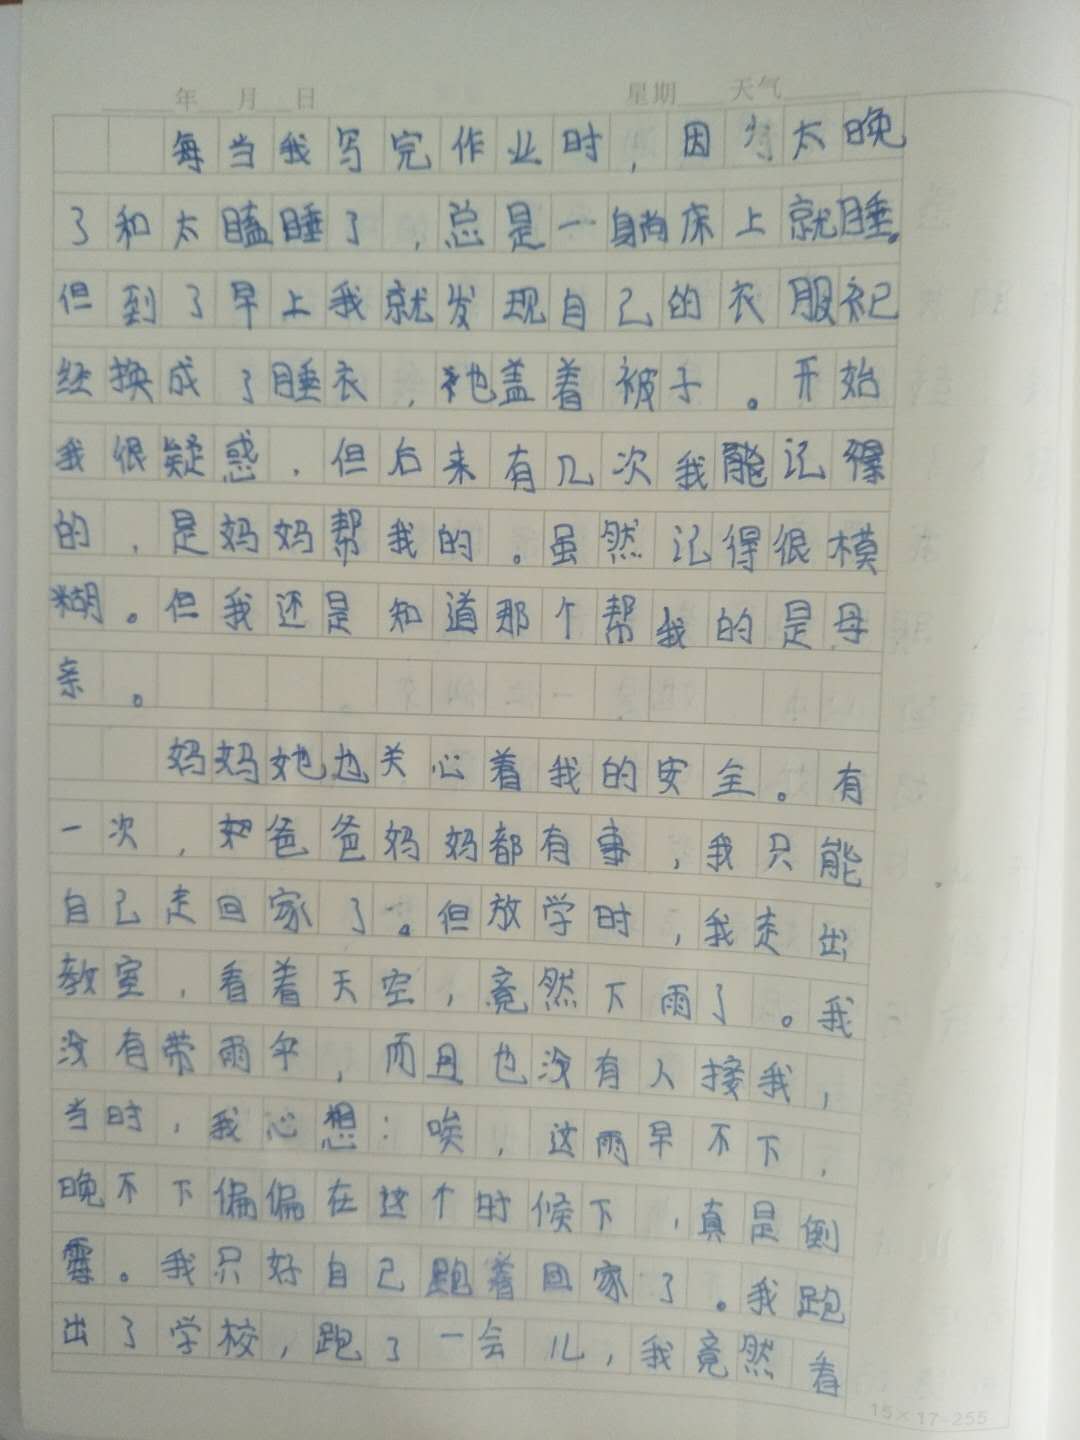 年 月 日 星期 天气
每当我写完作业时，因为太晚
了和太瞌睡了，总是一躺床上就睡。
但到了早上我就发现自己的衣服衤已
经换成了睡衣，也盖着被子。开始
我很疑惑，但后来有几次我能记得
的，是妈妈帮我的。虽然记得很模
糊。但我还是知道那个帮我的是母
亲。
妈妈她也关心着我的安全。有
一次，爸爸妈妈都有事，我只能
自己走回家了。但放学时，我走出
教室，看着天空，竟然下雨了。我
没有带雨伞，而且也没有人接我，
当时，我心想：唉，这雨早不下，
晚不下偏偏在这个时候下，真是倒
霉。我只好自己跑着回家了。我跑
出了学校，跑了一会儿，我竟然看
15×17-255